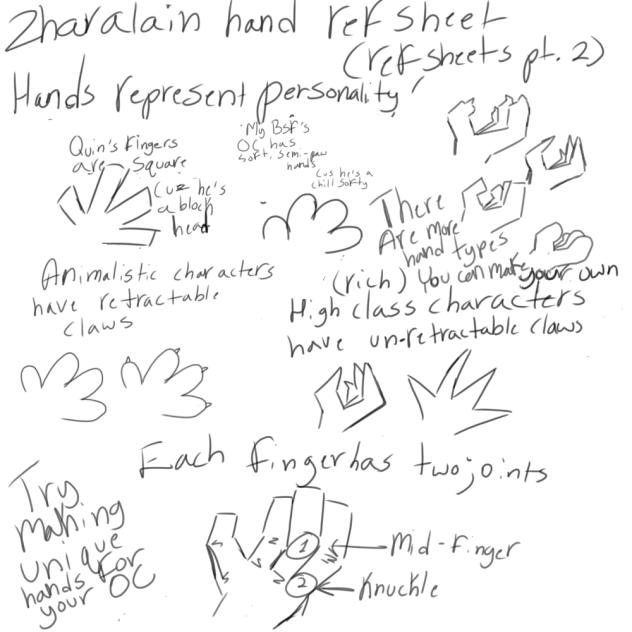 Zharalain hand ref sheet
(ref sheets pt. 2)
Hands represent personality!
Quin's Fingers
are square
Cuz he's
a block
head
My BSF's
OC has
soft, semi-paw
hands
Cus he's a
chill softy
There
Are more
hand types
You can make your own
Animalistic characters
have retractable
claws
(rich)
High class characters
have un-retractable claws
Each finger has two joints
Try
making
unique
hands for
your OC
1
Mid-finger
2
Knuckle